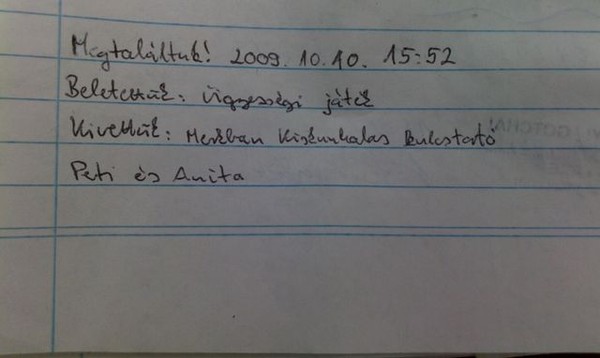 Megtaláltuk! 2009. 10. 10. 15:52
Beletettük: Ügyességi játék
Kivettük: Merkbau Kiskunhalas Kulcstartó
Peti és Anita
GOTCHA!